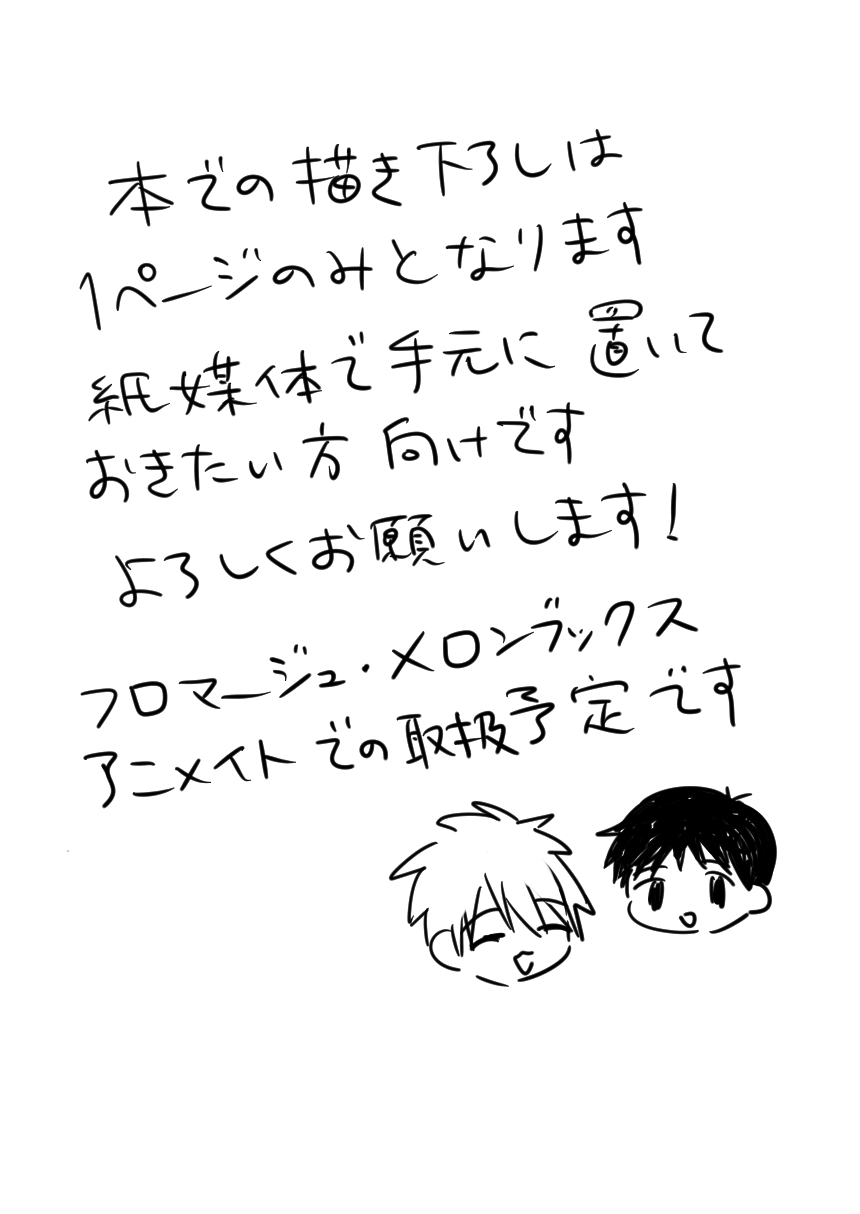 本での描き下ろしは
1ページのみとなります
紙媒体で手元に置いて
おきたい方向けです
よろしくお願いします!
フロマージュ・メロンブックス
アニメイトでの取扱予定です